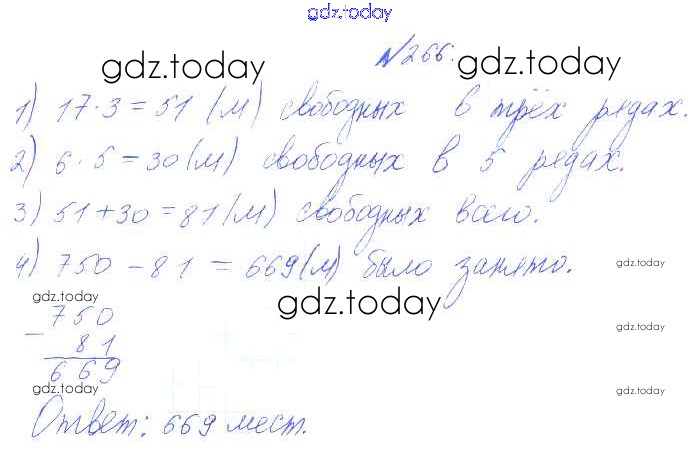 gdz.today
№266.
gdz.today gdz.today
1) 17·3=51 (м) свободных в трёх рядах.
2) 6·5=30 (м) свободных в 5 рядах.
3) 51+30=81 (м) свободных всего.
4) 750-81=669 (м) было занято.
gdz.today
gdz.today gdz.today
750
gdz.today
- 81
669
gdz.today gdz.today
Ответ: 669 мест.